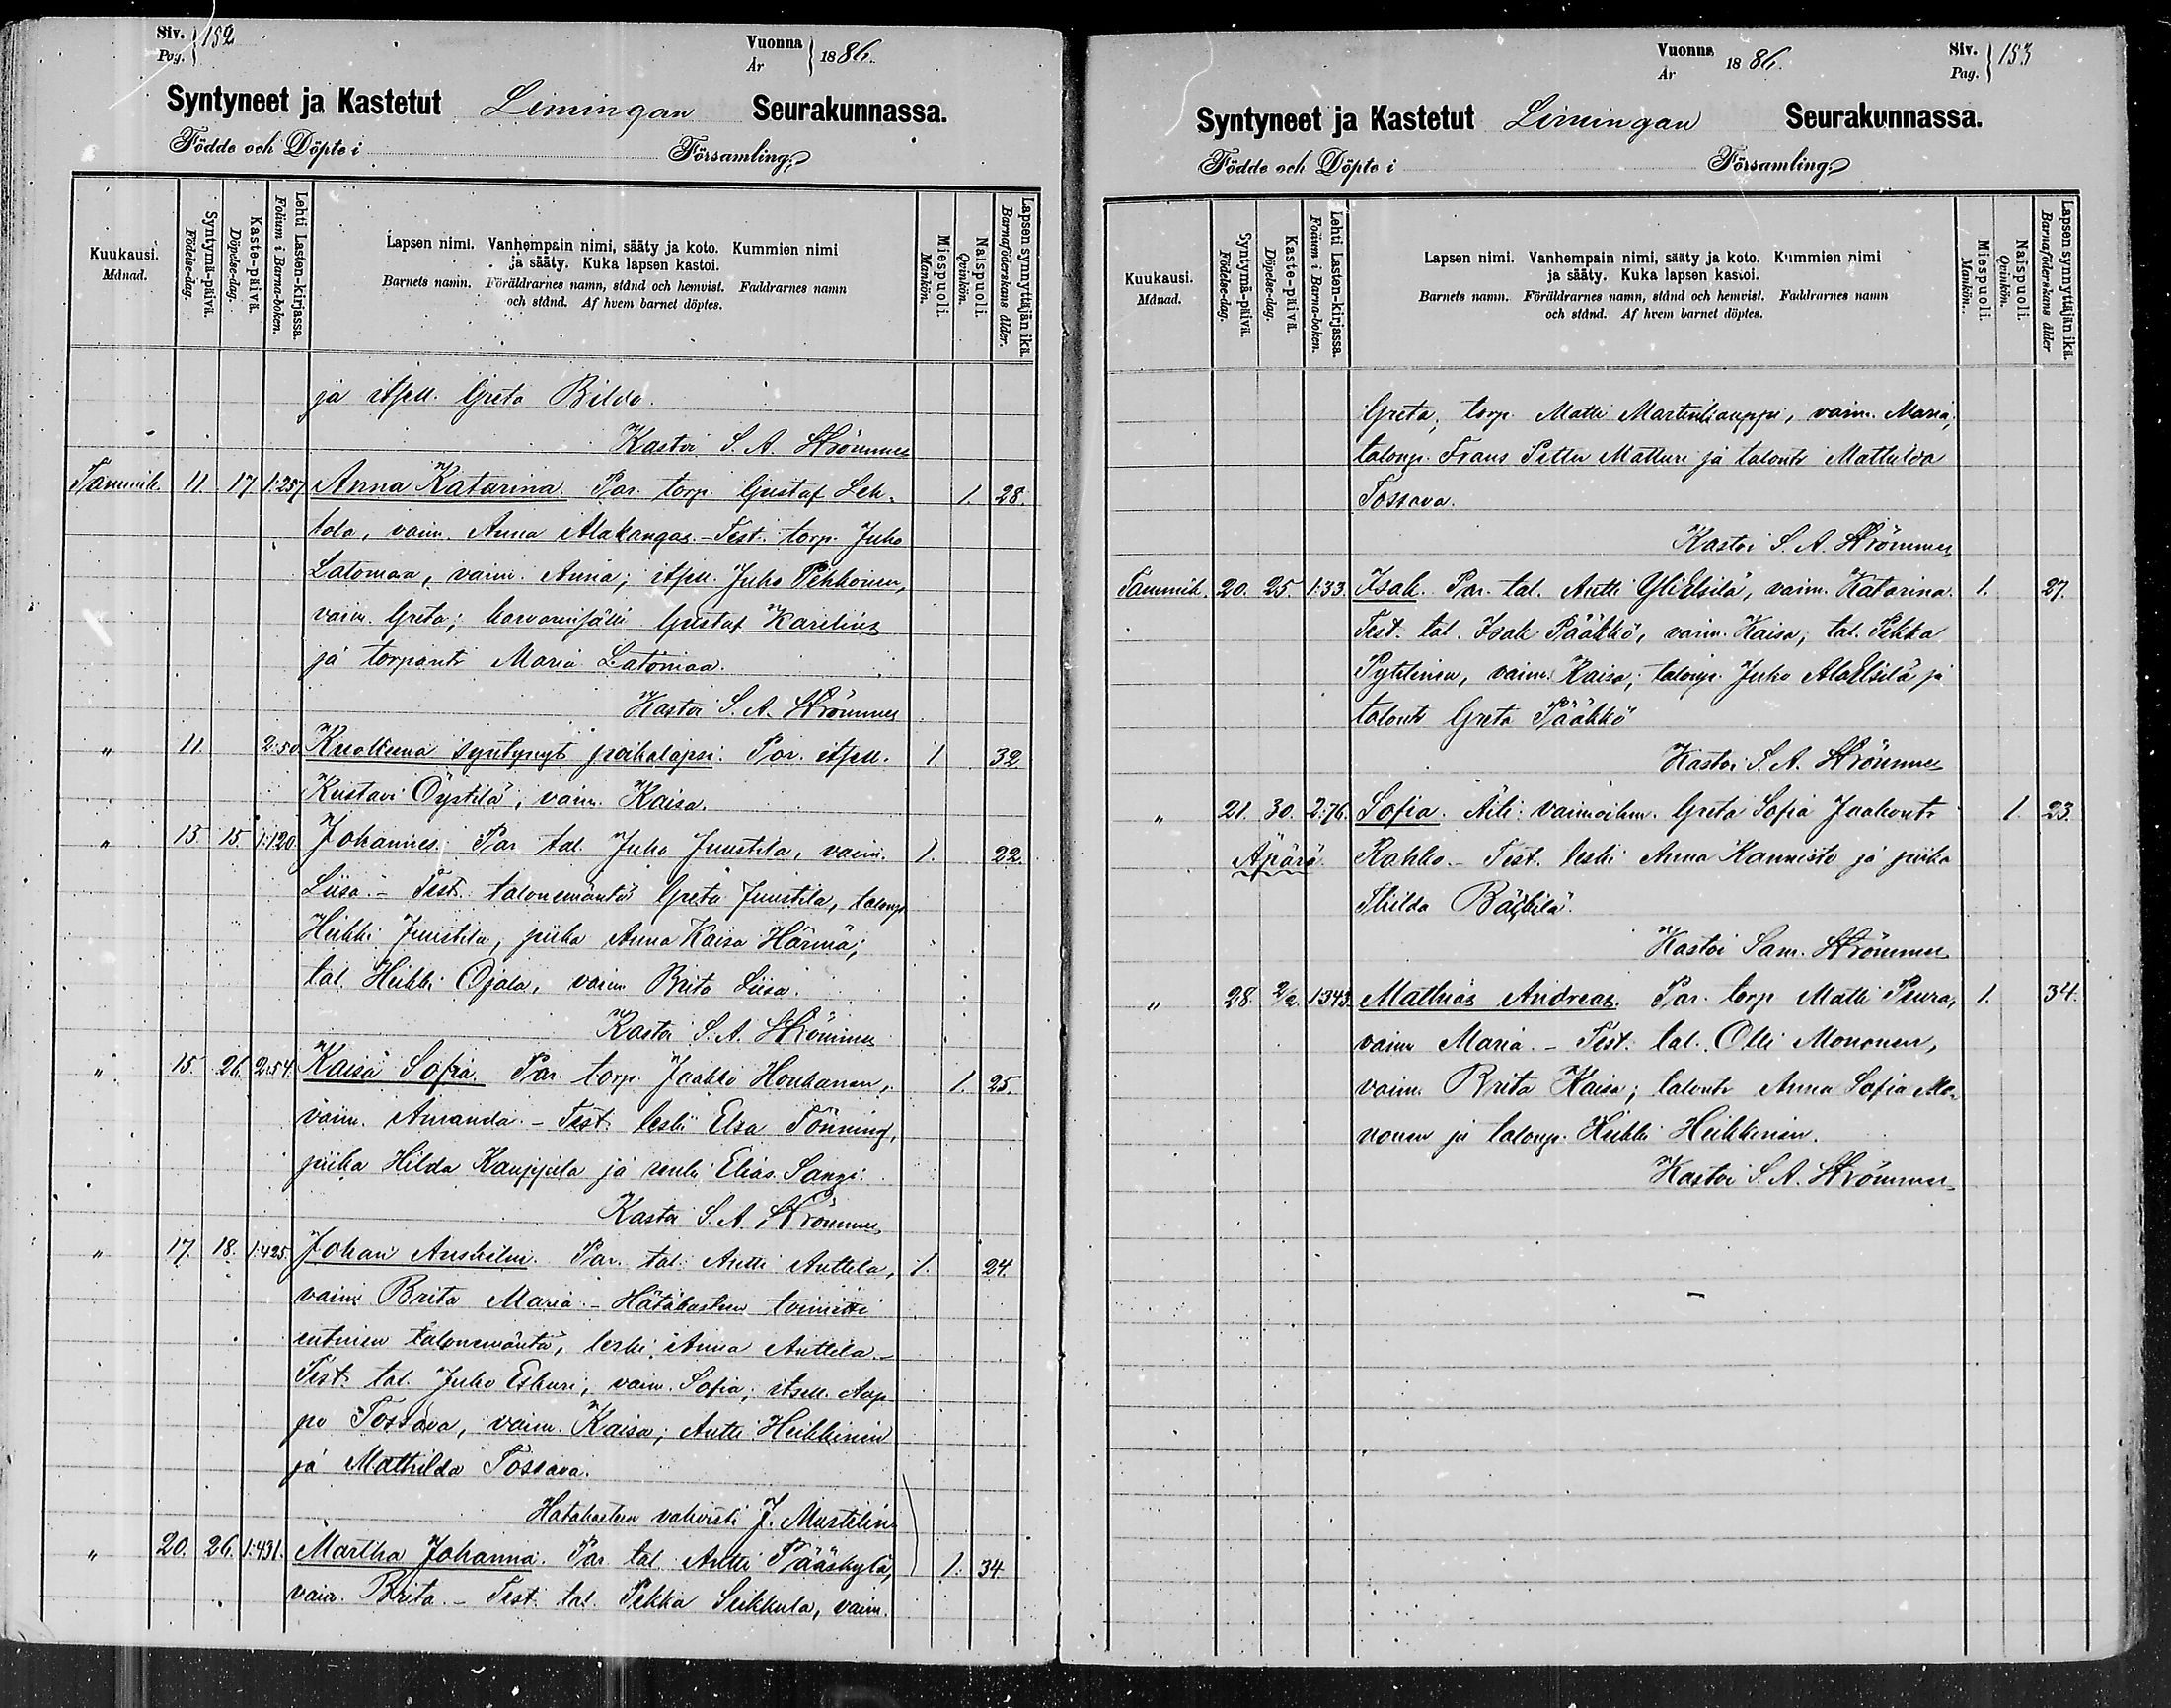 Siv. Pag. 152
Vuonna År 1886.
Syntyneet ja Kastetut Limingan Seurakunnassa.
Födde och Döpte i Församling.
Kuukausi. Månad.
Syntymä-päivä. Födelse-dag.
Kaste-päivä. Döpelse-dag.
Lehti Lasten-kirjassa. Folium i Barna-boken.
Lapsen nimi. Vanhempain nimi, sääty ja koto. Kummien nimi
ja sääty. Kuka lapsen kastoi.
Barnets namn. Föräldrarnes namn, stånd och hemvist. Faddrarnes namn
och stånd. Af hvem barnet döptes.
Miespuoli. Mankön.
Naispuoli. Qvinkön.
Lapsen synnyttäjän ikä. Barnaföderskans ålder.
ja itsell. Greta Bildo.
Kastoi S. A. Strömmer
Tammik. 11. 17 1:257 Anna Katarina. Par. torp. Gustaf Leh- 1. 28.
tola, vaim. Anna Alakangas. - Test. torp. Juho
Latomaa, vaim. Anna; itsell. Juho Pehkonen,
vaim. Greta; karvarinsälli Gustaf Karelius
ja torpantr Maria Latomaa.
Kastoi S. A. Strömmer
" 11. 2:50. Kuolleena syntynyt poikalapsi. Par. itsell. 1. 32
Kustavi Öystilä, vaim. Kaisa.
" 13. 15. 1:120. Johannes. Par. tal. Juho Juustila, vaim. 1. 22.
Liisa. - Test. talonemäntä Greta Juustila, talonp.
Heikki Juustila, piika Anna Kaisa Härmä;
tal. Heikki Ojala, vaim Brita Liisa.
Kastoi S. A. Strömmer
" 15. 26. 2:54. Kaisa Sofia. Par. torp. Jaakko Honkanen, 1. 25.
vaim. Amanda. - Test. leski Elsa Tönning,
piika Hilda Kauppila ja renki Elias Sangi.
Kastoi S. A. Strömmer
" 17. 18. 1:425 Johan Anshelm. Par. tal. Antti Anttila, 1. 24.
vaim Brita Maria. - Hätäkasteen toimitti
entinen talonemäntä, leski Anna Anttila. -
Test. tal. Juho Eskuri, vaim. Sofia; itsell. Aap-
po Tossava, vaim. Kaisa; Antti Heikkinen
ja Mathilda Tossava.
Hätäkasteen vahvisti J. Mustelin
" 20. 26. 1:431. Martha Johanna. Par. tal. Antti Pääskylä, 1. 34
vaim. Brita. - Test. tal. Pekka Seikkula, vaim.
Vuonna År 1886.
Siv. Pag. 153
Syntyneet ja Kastetut Limingan Seurakunnassa.
Födde och Döpte i Församling.
Kuukausi. Månad.
Syntymä-päivä. Födelse-dag.
Kaste-päivä. Döpelse-dag.
Lehti Lasten-kirjassa. Folium i Barna-boken.
Lapsen nimi. Vanhempain nimi, sääty ja koto. Kummien nimi
ja sääty. Kuka lapsen kastoi.
Barnets namn. Föräldrarnes namn, stånd och hemvist. Faddrarnes namn
och stånd. Af hvem barnet döptes.
Miespuoli. Mankön.
Naispuoli. Qvinkön.
Lapsen synnyttäjän ikä. Barnaföderskans ålder
Greta, torp. Matti Martinkauppi, vaim. Maria;
talonp. Frans Petter Matturi ja talontr Mathilda
Tossava.
Kastoi S. A. Strömmer
Tammik. 20. 25. 1:33. Isak. Par. tal. Antti YliElsilä, vaim. Katarina. 1. 27.
Test. tal. Isak Pääkkö, vaim. Kaisa; tal. Pekka
vaim. Kaisa; talonp. Juho AlaElsilä ja
talontr Greta Pääkkö
Kastoi S. A. Strömmer
" 21. 30. 2:76. Sofia. Äiti: vaimoihm. Greta Sofia Jaakontr 1. 23.
Äpärä. Rahko. - Test. leski Anna Kannisto ja piika
Thilda
Kastoi Sam. Strömmer
" 28 2/2. 1:343. Mathias Andreas. Par. torp Matti Peura, 1. 34.
vaim Maria. - Test. tal. Olli Mononen,
vaim. Brita Kaisa; talontr Anna Sofia Mo-
nonen ja talonp. Heikki Heikkinen.
Kastoi S. A. Strömmer